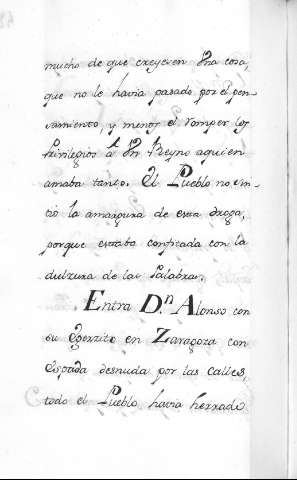 mucho de que creyesen Vna cosa,
que no le havia pasado por el pen-
samiento, y menos el romper los
Privilegios á Vn Reyno aquien
amaba tanto. El Pueblo no sin-
tió la amargura de esta droga,
porque estaba confitada con la
dulzura de las Palabras.
Entra Dn Alonso con
su Egerzito en Zaragoza con
Espada desnuda por las Calles,
todo el Pueblo havia herrado